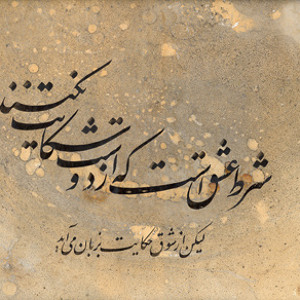 شرط عشق است که از دوست شکایت نکنند
لیکن از شوق حکایت بزبان می‌آید